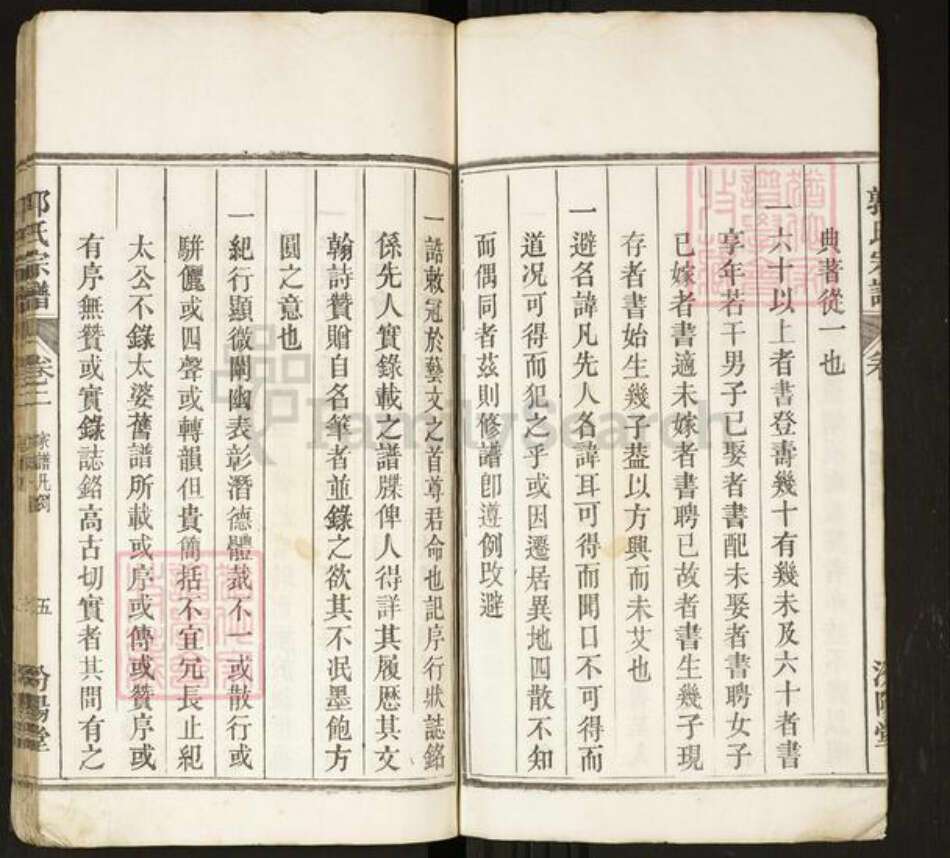 典著從一也
一六十以上者書登壽幾十有幾未及六十者書
享年若干男子已娶者書配未娶者書聘女子
已嫁者書適未嫁者書聘已故者書生幾子現
存者書始生幾子葢以方興而未艾也
一避名諱凡先人名諱耳可得而聞口不可得而
道况可得而犯之乎或因遷居異地四散不知
而偶同者茲則修譜卽遵例改避
一誥敕冠於藝文之首尊君命也記序行狀誌銘
係先人實錄載之譜牒俾人得詳其履歷其文
翰詩贊贈自名筆者並錄之欲其不泯墨飽方
圓之意也
一紀行顯微闡幽表彰潛德體裁不一或散行或
駢儷或四聲或轉韻但貴簡括不宜冗長止紀
太公不錄太婆舊譜所載或序或傳或贊序或
有序無贊或實錄誌銘高古切實者其間有之
郭氏宗譜
卷二
五
汾陽堂
FamilySearch